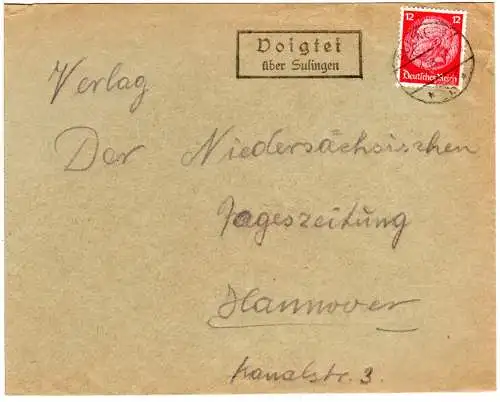 Voigtei
über Sulingen
12 12
Deutsches Reich
Verlag
Der Niedersächsischen
Tageszeitung
Hannover
Kanalstr. 3.